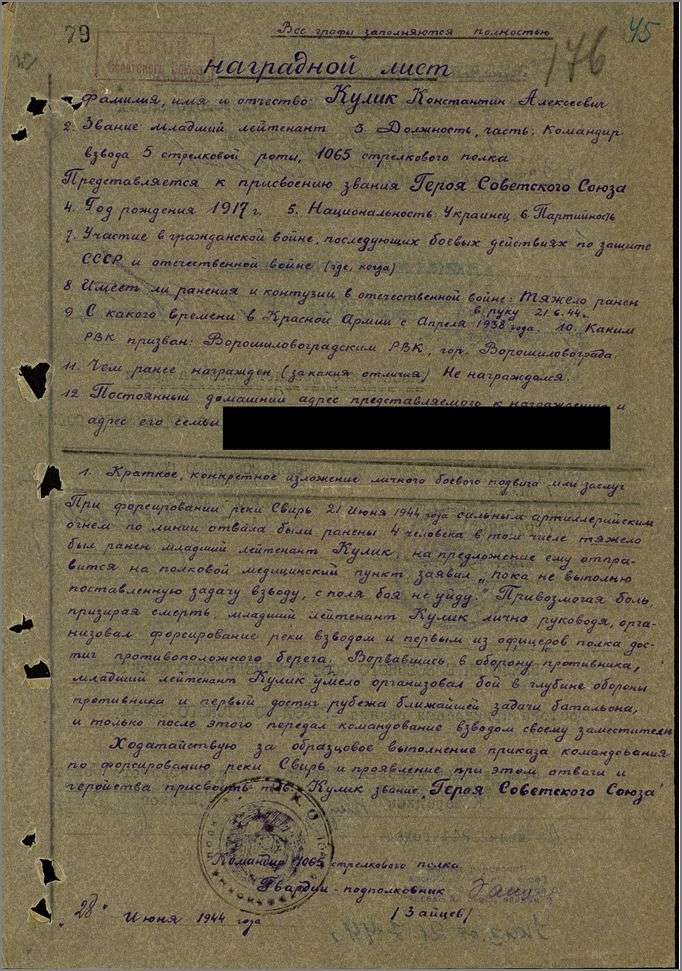 79
Все графы заполняются полностью
45
176
Наградной лист
1. Фамилия, имя и отчество: Кулик Константин Алексеевич
2. Звание младший лейтенант 3. Должность, часть: Командир
взвода 5 стрелковой роты, 1065 стрелкового полка
Представляется к присвоению звания Героя Советского Союза
4. Год рождения 1917 г. 5. Национальность: Украинец 6 Партийность
7. Участие в гражданской войне, последующих боевых действиях по защите
СССР и отечественной войне (где, когда)
8 Имеет ли ранения и контузии в отечественной войне: Тяжело ранен
в руку 21.6.44г.
9 С какого времени в Красной Армии с Апреля 1938 года. 10. Каким
РВК призван: Ворошиловоградским РВК, гор. Ворошиловограда
11. Чем ранее награжден (за какия отличия) Не награждался.
12 Постоянный домашний адрес представляемого к награждению и
адрес его семьи
1. Краткое, конкретное изложение личного боевого подвига или заслуг
При форсировании реки Свирь 21 Июня 1944 года сильным артиллерийским
огнем по линии отвала были ранены 4 человека в том числе тяжело
был ранен младший лейтенант Кулик, на предложение ему отпра-
вится на полковой медицинский пункт, заявил „пока не выполню
поставленную задачу взводу, с поля боя не уйду." Привозмогая боль,
призирая смерть, младший лейтенант Кулик лично руководя, орга-
низовал форсирование реки взводом и первым из офицеров полка дос-
тиг противоположного берега. Ворвавшись, в оборону противника,
младший лейтенант Кулик умело организовал бой в глубине обороны
противника и первый достиг рубежа ближайшей задачи батальона,
и только после этого передал командование взводом своему заместителю
Ходатайствую за образцовое выполнение приказа командования
по форсированию реки Свирь и проявление при этом отваги и
геройства присвоить тов. Кулик звание „Героя Советского Союза"
Командир 1065 стрелкового полка.
Гвардии-подполковник
(Зайцев)
„28" Июня 1944 года